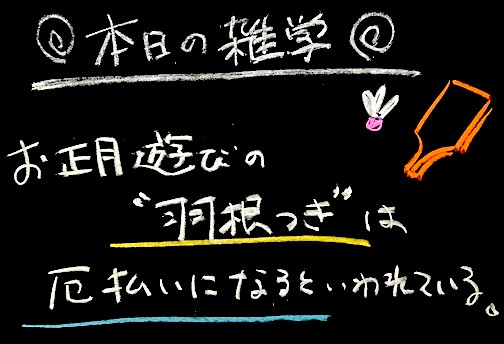 ＠本日の雑学＠
お正月遊びの
“羽根つき”は
厄払いになるといわれている。